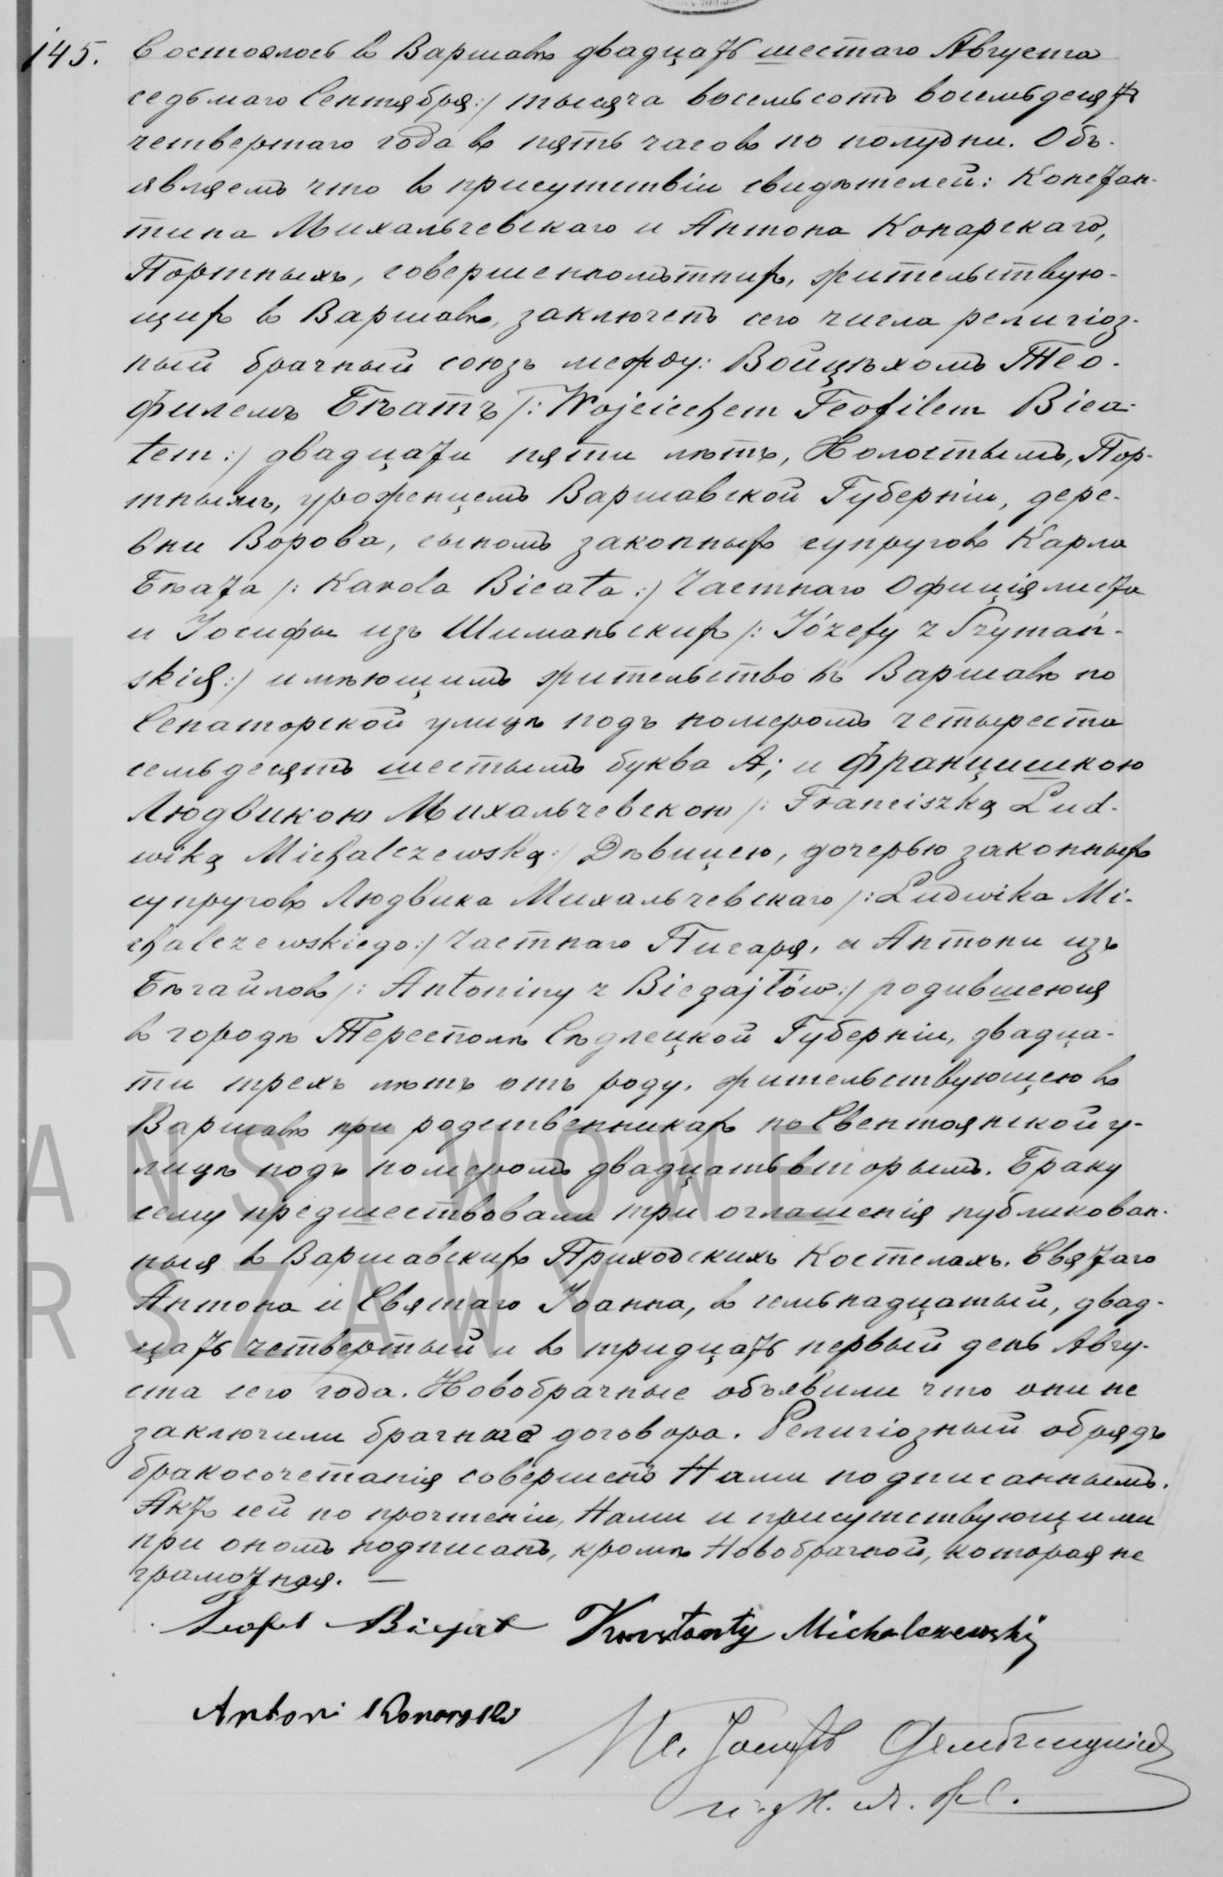 145. Состоялось въ Варшавѣ двадцать шестаго Августа
седьмаго Сентября:/ тысяча восемьсотъ восемьдесятъ
четвертаго года въ пять часовъ по полудни. Объ-
являемъ что въ присутствіи свидѣтелей: Констан-
тина Михальчевскаго и Антона Конарскаго,
Портныхъ, совершеннолѣтнихъ, жительствую-
щихъ въ Варшавѣ, заключенъ сего числа религіоз-
ный брачный союзъ между: Войцѣхомъ Тео-
филемъ Бѣатъ /: Wojciechem Teofilem Biea-
tem :/ двадцати пяти лѣтъ, Холостымъ, Пор-
тнымъ, уроженцемъ Варшавской Губерніи, дере-
вни Ворова, сыномъ законныхъ супруговъ Карла
Бѣата /: Karola Bieata :/ Частнаго Офиціялиста
и Іосифы изъ Шиманьскихъ /: Józefy z Szymań-
skich :/ имѣющимъ жительство въ Варшавѣ по
Сенаторской улицѣ подъ номеромъ четыреста
семьдесятъ шестымъ буква А; и Францишкою
Людвикою Михальчевскою /: Franciszką Lud-
wiką Michalczewską :/ Дѣвицею, дочерью законныхъ
супруговъ Людвика Михальчевскаго /: Ludwika Mi-
chalczewskiego :/ Частнаго Писаря, и Антони изъ
Бѣгайловъ /: Antoniny z Biegajłów :/ родившеюся
въ городѣ Тересполѣ Сѣдлецкой Губерніи, двадца-
ти трехъ лѣтъ отъ роду, жительствующею въ
Варшавѣ при родственникахъ по Свентоянской у-
лицѣ подъ номеромъ двадцать вторымъ. Браку
сему предшествовали три оглашенія публикован-
ныя въ Варшавскихъ Приходскихъ Костелахъ. Святаго
Антона и Святаго Іоанна, въ семьнадцатый, двад-
цать четвертый и въ тридцать первый день Авгу-
ста сего года. Новобрачные объявили что они не
заключили брачнаго договора. Религіозный обрядъ
бракосочетанія совершенъ Нами подписаннымъ.
Актъ сей по прочтеніи, Нами и присутствующими
при ономъ подписанъ, кромѣ Новобрачной, которая не
грамотная. —
Teofil Biejat Konstanty Michalczewski
Antoni Konarski
Кс. Іосифъ
AŃSTWOWE
RSZAWY